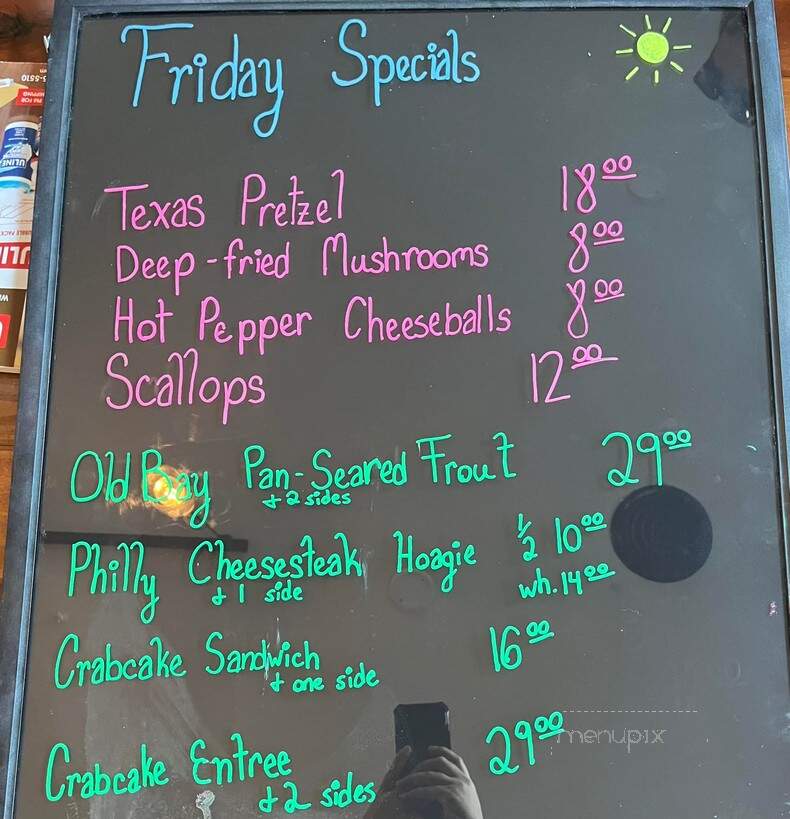 Friday Specials
Texas Pretzel 18.00
Deep-fried Mushrooms 8.00
Hot Pepper Cheeseballs 8.00
Scallops 12.00
Old Bay Pan-Seared Trout 29.00
+ 2 sides
Philly Cheesesteak Hoagie 1/2 10.00
+ 1 side wh. 14.00
Crabcake Sandwich 16.00
+ one side
Crabcake Entree 29.00
+ 2 sides
menupix
ULINE
5-5510